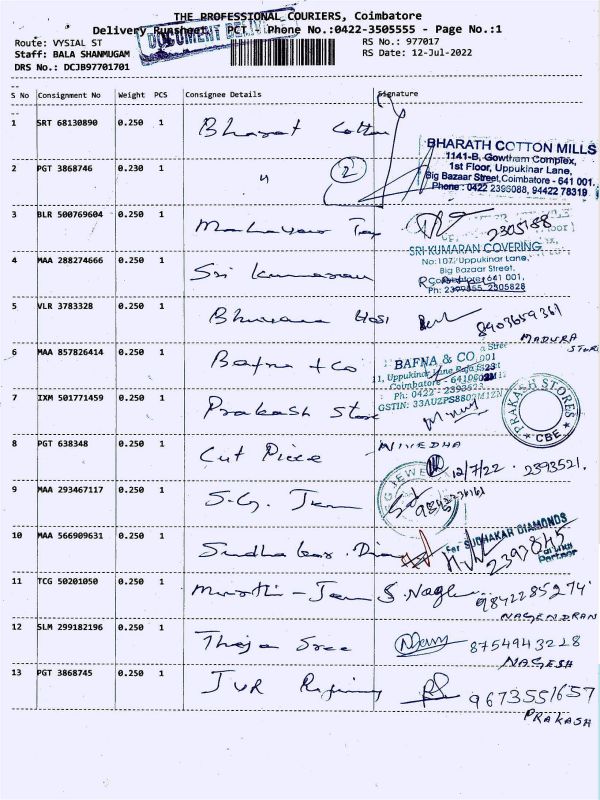 THE PROFESSIONAL COURIERS, Coimbatore
Delivery Runsheet, PCT - Phone No.:0422-3505555 - Page No.:1
DOCUMENT DELIVERY
Route: VYSIAL ST
RS No.: 977017
Staff: BALA SHANMUGAM
RS Date: 12-Jul-2022
DRS No.: DCJB97701701
S No Consignment No Weight PCS Consignee Details Signature
1 SRT 68130890 0.250 1 Bharat Cotton
BHARATH COTTON MILLS
1141-B, Gowtham Complex,
1st Floor, Uppukinar Lane,
Big Bazaar Street, Coimbatore - 641 001.
Phone : 0422 2395088, 94422 78319
2 PGT 3868746 0.230 1 " 2
3 BLR 500769604 0.250 1 Mahaveer Tex 2305188
4 MAA 288274666 0.250 1 Sri Kumaran
SRI KUMARAN COVERING
No:107, Uppukinar Lane,
Big Bazaar Street,
Coimbatore - 641 001,
Ph: 2399355, 2305828
5 VLR 3783328 0.250 1 Bhuvana Hosi 8903659361
MADURA STORE
6 MAA 857826414 0.250 1 Bafna & Co
BAFNA & CO
11, Uppukinar Lane, Raja Street
Coimbatore - 641001
Ph: 0422 -
GSTIN: 33AUZPS8802M1ZN
7 IXM 501771459 0.250 1 Prakash Store
PRAKASH STORES
CBE
NIVEDHA
8 PGT 638348 0.250 1 Cut Piece 12/7/22 2393521.
9 MAA 293467117 0.250 1 S.G. Jew
S G JEWE
10 MAA 566909631 0.250 1 Sudhakar Diam
For SUDHAKAR DIAMONDS
2397845
Partner
11 TCG 50201050 0.250 1 Murthi - Jew S. Nagen 9842285274
NAGENDRAN
12 SLM 299182196 0.250 1 Theja Sree 8754943228
NAGESH
13 PGT 3868745 0.250 1 JVR Refining 9673551657
PRAKASH